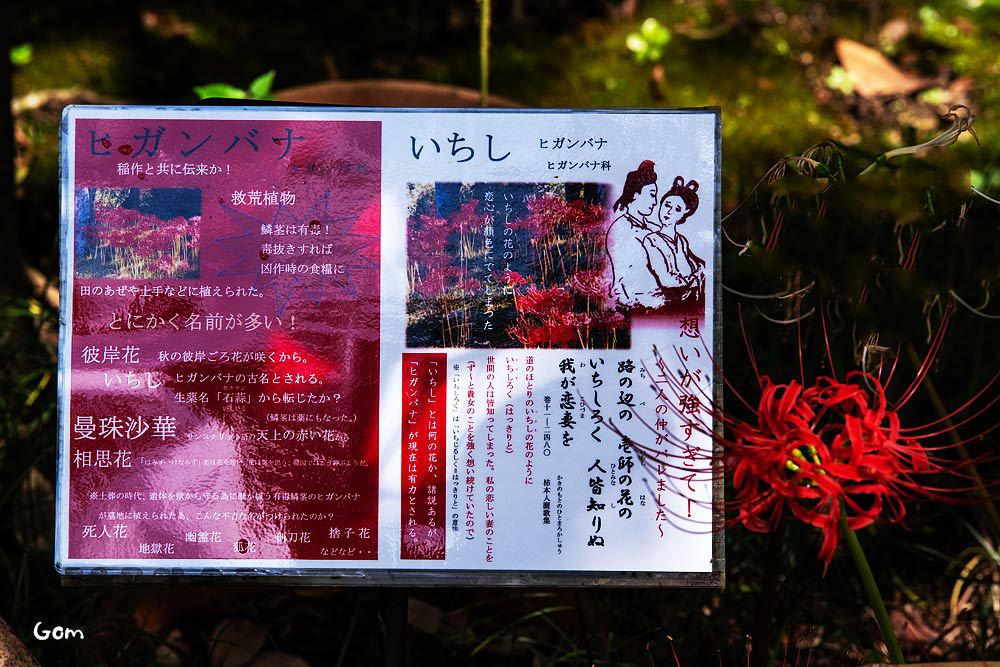 ヒガンバナ
稲作と共に伝来か！
救荒植物
鱗茎は有毒！
毒抜きすれば
凶作時の食糧に
田のあぜや土手などに植えられた。
とにかく名前が多い！
彼岸花 秋の彼岸ごろ花が咲くから。
いちし ヒガンバナの古名とされる。
生薬名「石蒜」から転じたか？
（鱗茎は薬にもなった。）
曼珠沙華 サンスクリット語の天上の赤い花から
相思花
※土葬の時代、遺体を獣から守る為に獣が嫌う有毒鱗茎のヒガンバナ
が墓地に植えられた為、こんな不吉な名がつけられたのか？
死人花 地獄花 幽霊花 狐花 剃刀花 捨子花
などなど・・
いちし ヒガンバナ
ヒガンバナ科
いちしの花のように
恋心が顔色にでてしまった
想いが強すぎて！
～二人の仲がバレました～
路の辺の 壱師の花の
いちしろく 人皆知りぬ
我が恋妻を
巻十一―二四八〇 柿本人麿歌集
かきのもとのひとまろかしゅう
道のほとりのいちしの花のように
いちしろく（はっきりと）
世間の人は皆知ってしまった。私の恋しい妻のことを
（ず～と貴女のことを強く想い続けていたので）
※「いちしろく」は「いちじるしく＝はっきりと」の意味
「いちし」とは何の花か、諸説あるが
「ヒガンバナ」が現在は有力とされる。
Gom